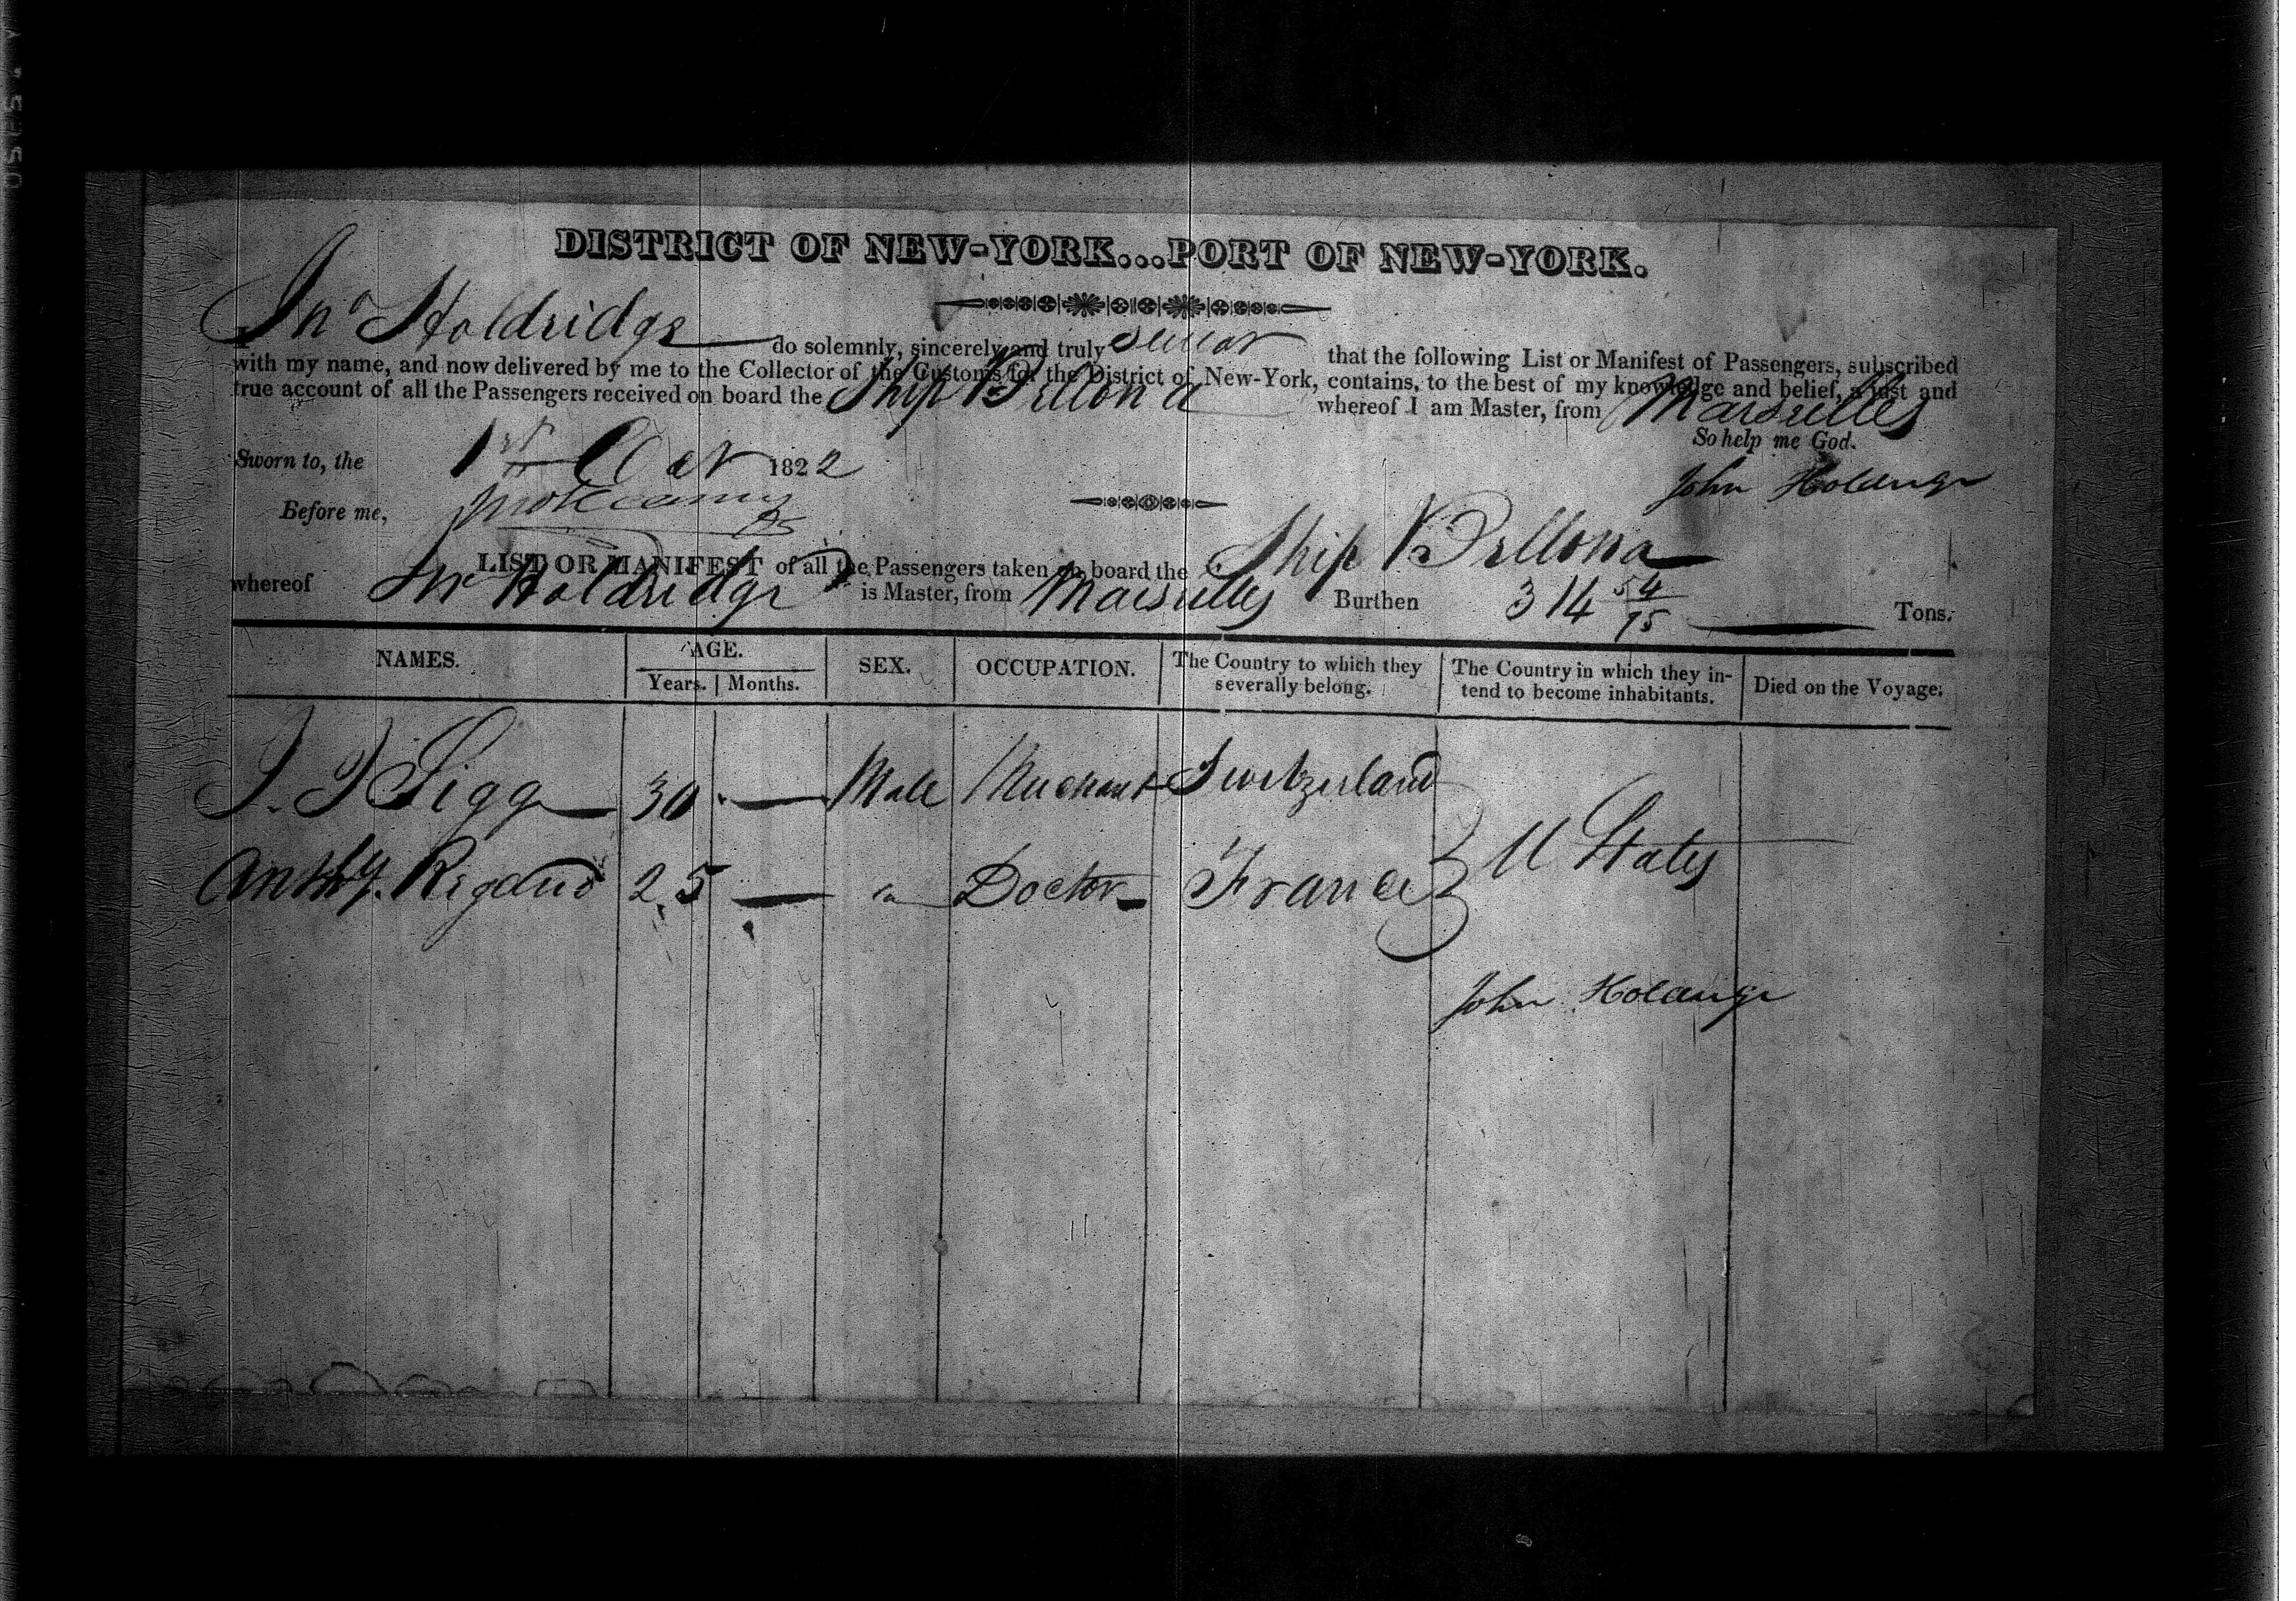 DISTRICT OF NEW-YORK...PORT OF NEW-YORK.
Jno Holdridge do solemnly, sincerely and truly swear that the following List or Manifest of Passengers, subscribed
with my name, and now delivered by me to the Collector of the Customs for the District of New-York, contains, to the best of my knowledge and belief, a just and
true account of all the Passengers received on board the Ship Bellona whereof I am Master, from Marseilles
So help me God.
Sworn to, the 1st Oct 1822
John Holdridge
Before me,
LIST OR MANIFEST of all the Passengers taken on board the Ship Bellona
whereof Jno Holdridge is Master, from Marseilles Burthen 314 54/95 Tons.
NAMES. AGE. Years. Months. SEX. OCCUPATION. The Country to which they severally belong. The Country in which they intend to become inhabitants. Died on the Voyage.
J. J Sigg 30 — Male Merchant Switzerland
U States
Anthy. Rigaud 25 — " Doctor France
John Holdridge